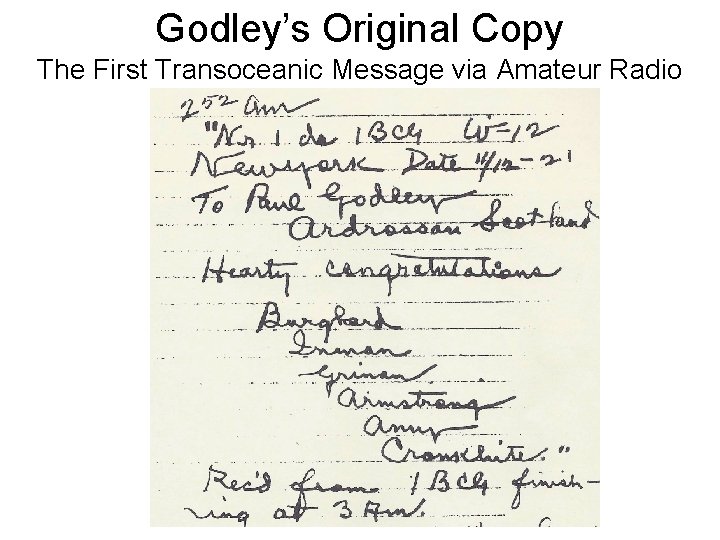 Godley's Original Copy
The First Transoceanic Message via Amateur Radio
2 52 am
"Nr 1 de 1BCG W=12
Newyork Date 11/12-21
To Paul Godley
Ardrossan Scotland
Hearty congratulations
Burghard
Inman
Grinan
Armstrong
Amy
Cronkhite."
Rec'd from 1BCG finish-
ing at 3 Am.